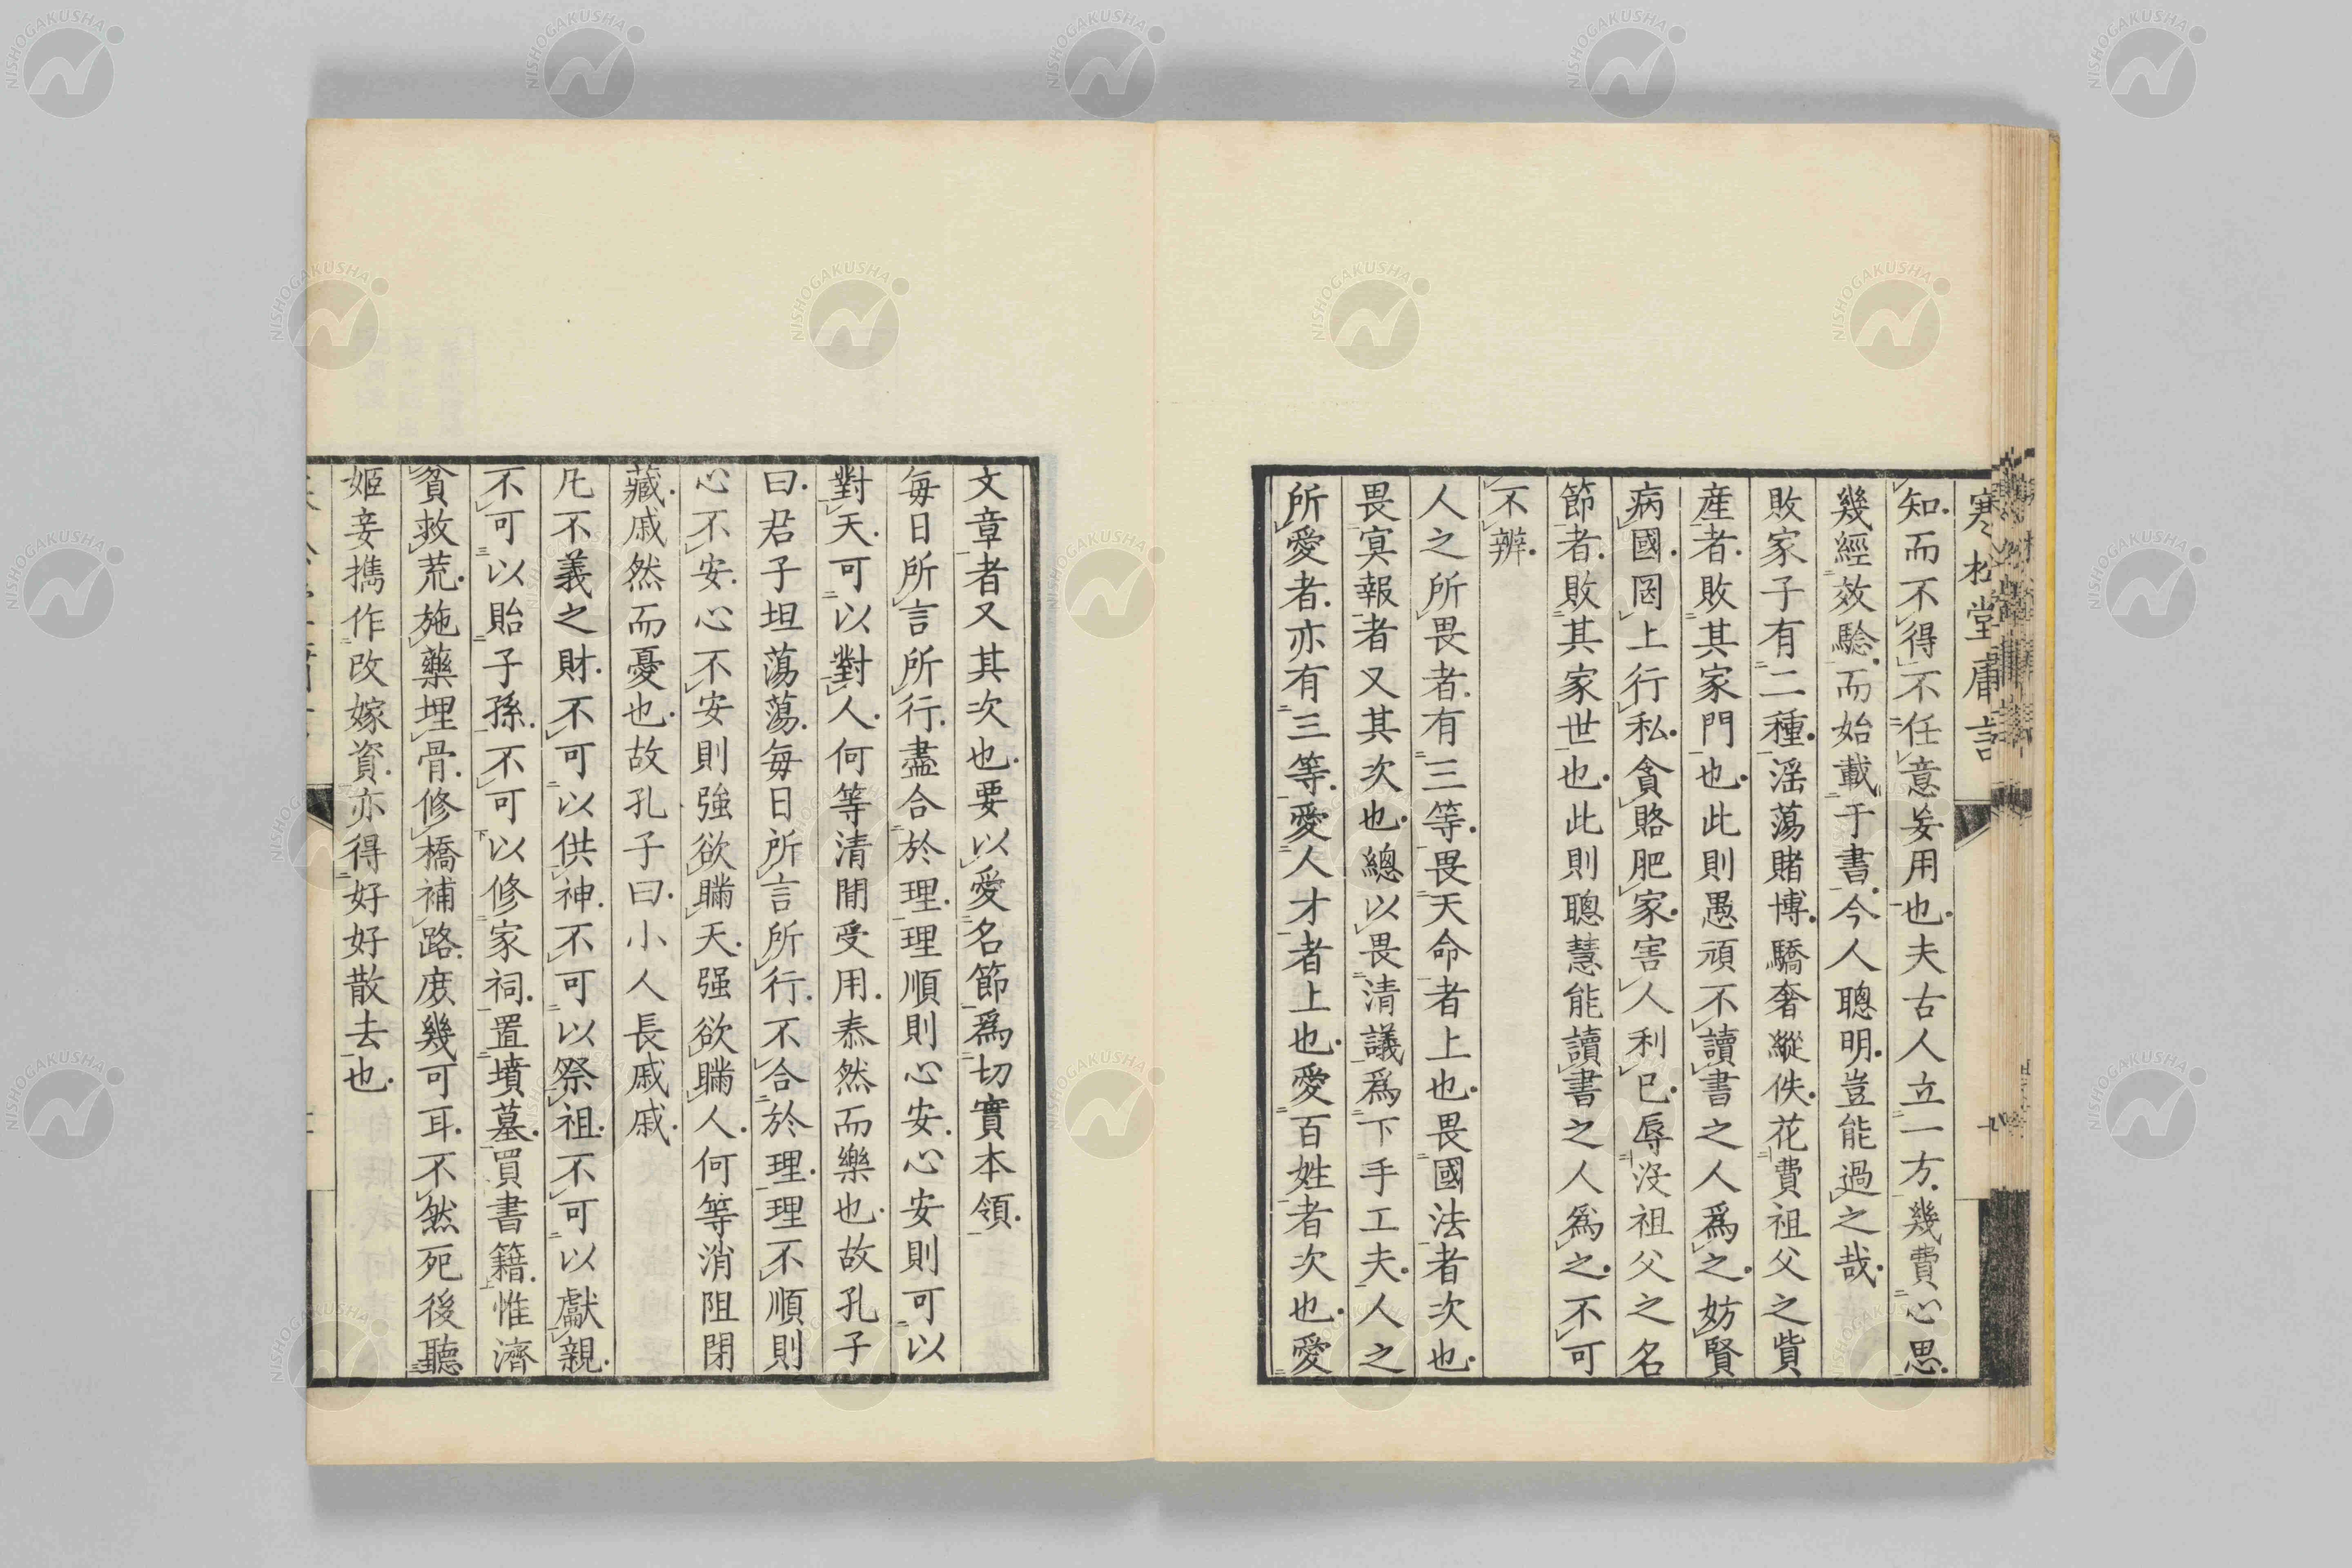 寒松堂庸言
知而不得不任意妄用也夫古人立一方幾費心思
幾經效驗而始載于書今人聰明豈能過之哉
敗家子有二種滛蕩賭博驕奢縱佚花費祖父之貲
産者敗其家門也此則愚頑不讀書之人爲之妨賢
病國罔上行私貪賂肥家害人利已辱沒祖父之名
節者敗其家世也此則聰慧能讀書之人爲之不可
不辨
人之所畏者有三等畏天命者上也畏國法者次也
畏冥報者又其次也總以畏清議爲下手工夫人之
所愛者亦有三等愛人才者上也愛百姓者次也愛
文章者又其次也要以愛名節爲切實本領
每日所言所行盡合於理理順則心安心安則可以
對天可以對人何等清閒受用泰然而樂也故孔子
曰君子坦蕩蕩每日所言所行不合於理理不順則
心不安心不安則強欲瞞天强欲瞞人何等消阻閉
藏戚然而憂也故孔子曰小人長戚戚
凡不義之財不可以供神不可以祭祖不可以獻親
不可以貽子孫不可以修家祠置墳墓買書籍惟濟
貧救荒施藥埋骨修橋補路庻幾可耳不然死後聽
姬妾携作改嫁資亦得好好散去也
NISHOGAKUSHA